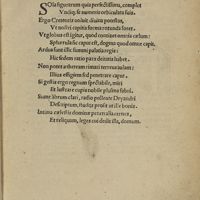 Sola figurarum quia perfectissima, complet
Vndiq; se numeris orbiculata suis.
Ergo Creatoris voluit diuina potestas,
Vt nostri capitis forma rotunda foret.
Vt globus est igitur, quod continet omnia cælum:
Sphæra sic caput est, dogma quod omne capit.
Ardua sunt illic summi palatia regis:
Hic sedem ratio pars deitatis habet.
Non poterat æthereum rimari terrea
Illius effigiem sed penetrare caput.
Si gestis ergo regnum spectabile, miri
Et lustrare cupis nobile plasma poli.
Sume librum clari, ratio pollente Dryandri
Descriptum, studeas prosit ut ille bonis.
Intima cælestis dominæ penetralia cernes,
Et reliquum, leges cui dedit illa, domum.